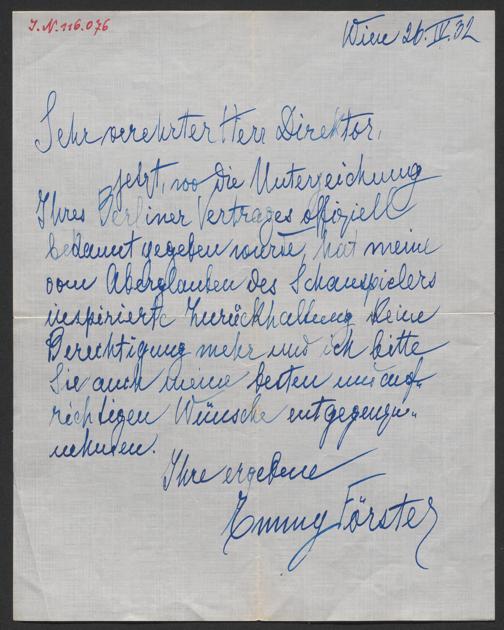 I.N. 116.076
Wien 26.IV.32
Sehr verehrter Herr Direktor,
jetzt, wo die Unterzeichnung
Ihres Berliner Vertrages offiziell
bekannt gegeben wurde, hat meine
vom Aberglauben des Schauspielers
inspirierte Zurückhaltung keine
Berechtigung mehr und ich bitte
Sie auch meine besten und auf-
richtigen Wünsche entgegenzu-
nehmen.
Ihre ergebene
Emmy Förster